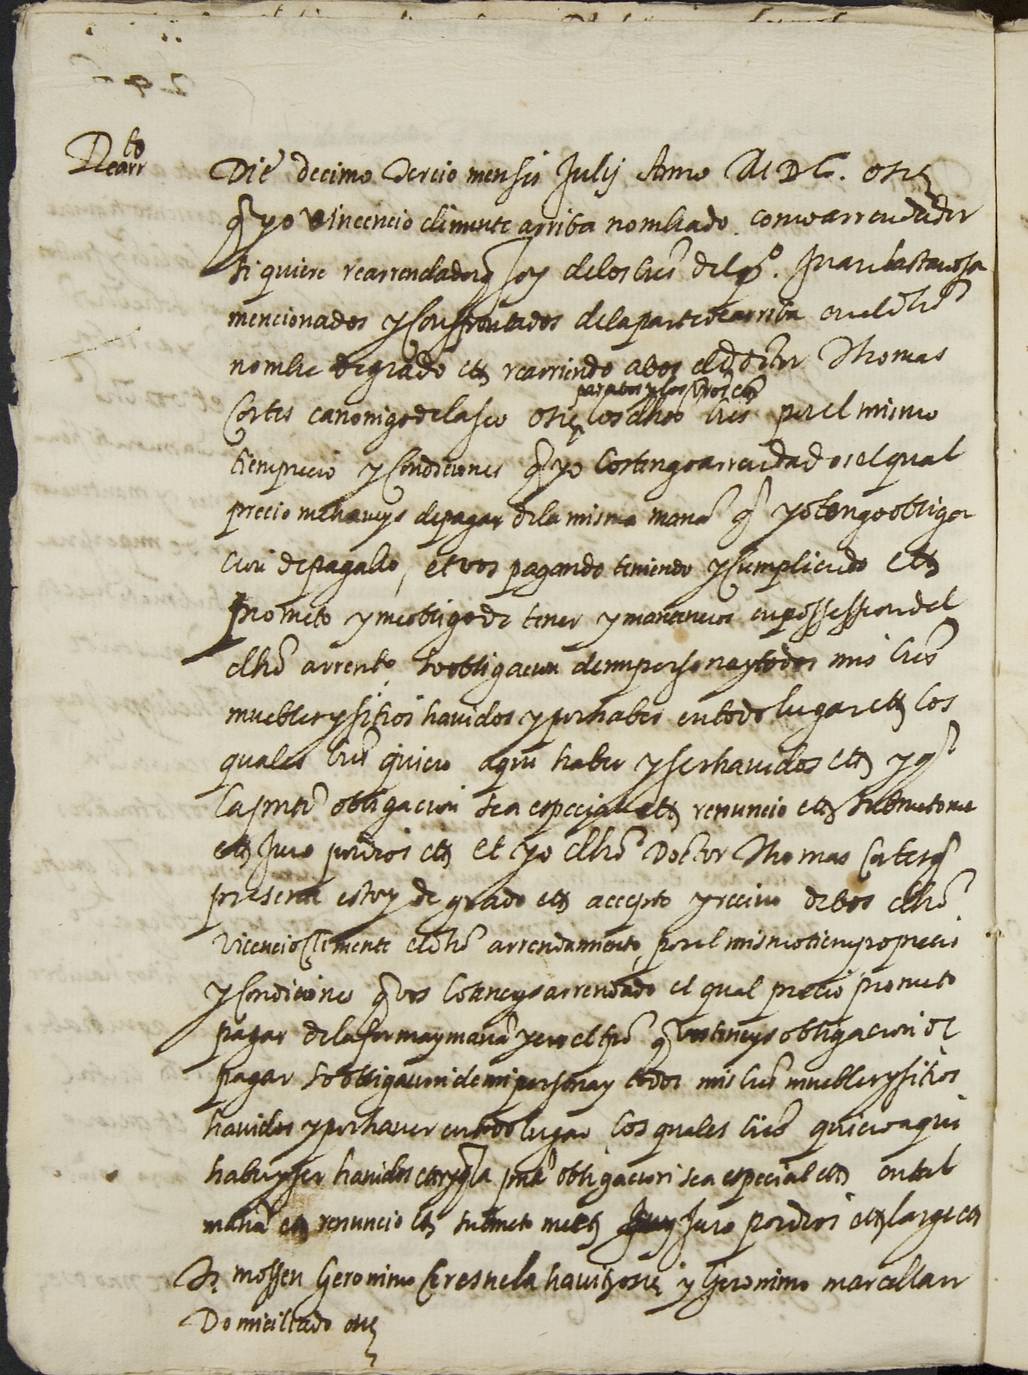 Rearr to
Die decimo tercio mensis Julij Anno MDC. osce
q yo Vincencio climente arriba nombrado como arrendador
si quiere rearrendador q soy de los bies del q.º Juan lastanosa
mencionados y Confrontados de la parte de arriba en el dho
nombre de grado etc rearriendo a bos el Doctor Thomas
para bos y los vros etc
Cortes canonigo de la seo osce los dhos bies por el mismo
tiempo precio y Condiciones q yo los tengo arrendados el qual
precio me haueys de pagar de la misma mana q yo tengo obliga
cion de pagallo, et vos pagando teniendo y Cumpliendo etc
prometo y me obligo de tener y manteneros en possession del
dho arrento so obligacion de mi persona y todos mis bies
muebles y sitios hauidos y por haber en todo lugar etc los
quales bies quiero aqui haber y ser hauidos etc y q
la pnte obligacion sea especial etc renuncio etc submetome
etc Juro por dios etc et yo dho Doctor Thomas Cortes q
presente estoy de grado etc accepto y reciuo de bos dho
Vicencio Climente el dho arrendamiento, por el mismo tiempo precio
y Condiciones q vos lo aueys arrendado el qual precio prometo
pagar de la forma y mana y en el tpo q vos teneys obligacion de
pagar so obligacion de mi persona y todos mis bies muebles y sitios
hauidos y por hauer en todo lugar los quales bies quiero aqui
haber y ser hauidos etc y q la pnte obligacion sea especial etc en tal
mana etc renuncio etc submeto me etc Juro por dios etc large etc
Ts mossen Geronimo Ceresuela hauit. osce y Geronimo marcellan
Domiciliado osce